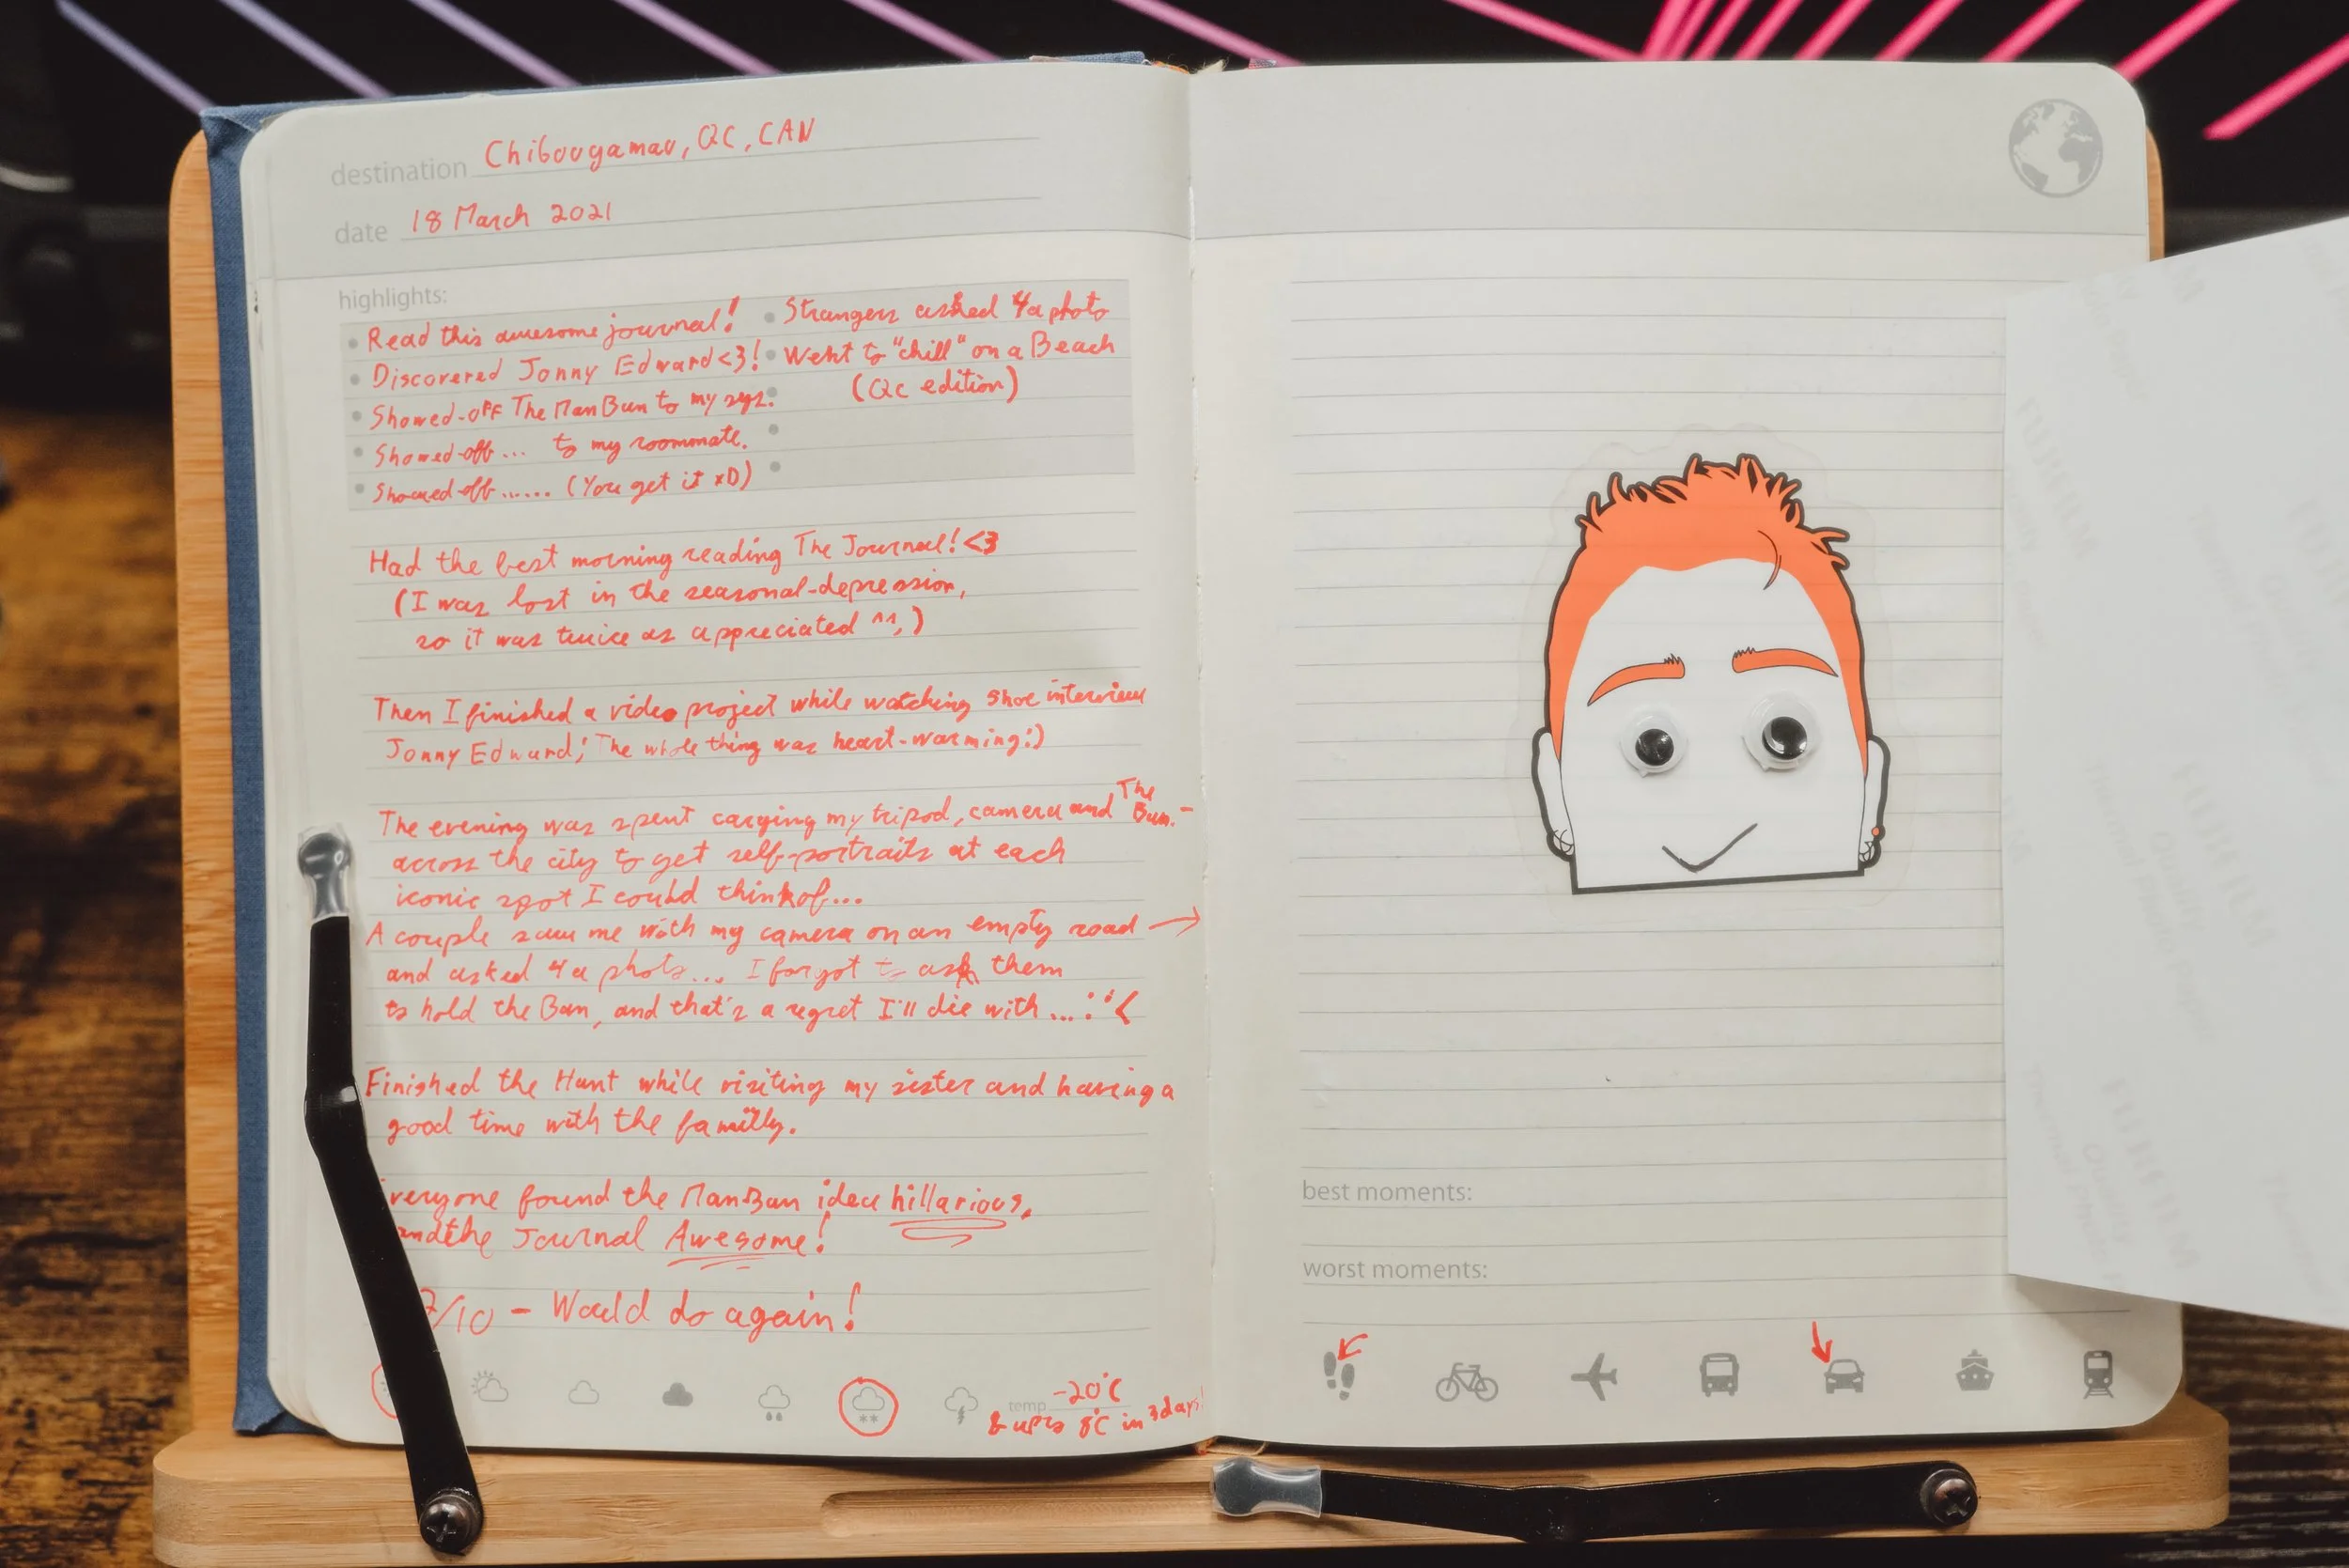 destination Chibougamau, QC, CAN
date 18 March 2021
highlights:
Read this awesome journal!
Discovered Jonny Edward <3!
Showed-off The ManBun to my sys.
Showed-off... to my roommate.
Showed-off...... (You get it xD)
Strangers asked 4a photo
Went to "chill" on a Beach
(Qc edition)
Had the best morning reading The Journal! <3
(I was lost in the seasonal-depression,
so it was twice as appreciated ^^,)
Then I finished a video project while watching shoe interview
Jonny Edward; The whole thing was heart-warming :)
The evening was spent carrying my tripod, camera and The Bun.-
across the city to get self-portraits at each
iconic spot I could think of...
A couple saw me with my camera on an empty road →
and asked 4a photo... I forgot to ask them
to hold the Bun, and that's a regret I'll die with... :'<
Finished the Hunt while visiting my sister and having a
good time with the familly.
veryone found the ManBun idea hillarious,
and the Journal Awesome!
/10 - Would do again!
temp -20°C
& up to 8°C in 3 days!
best moments:
worst moments: